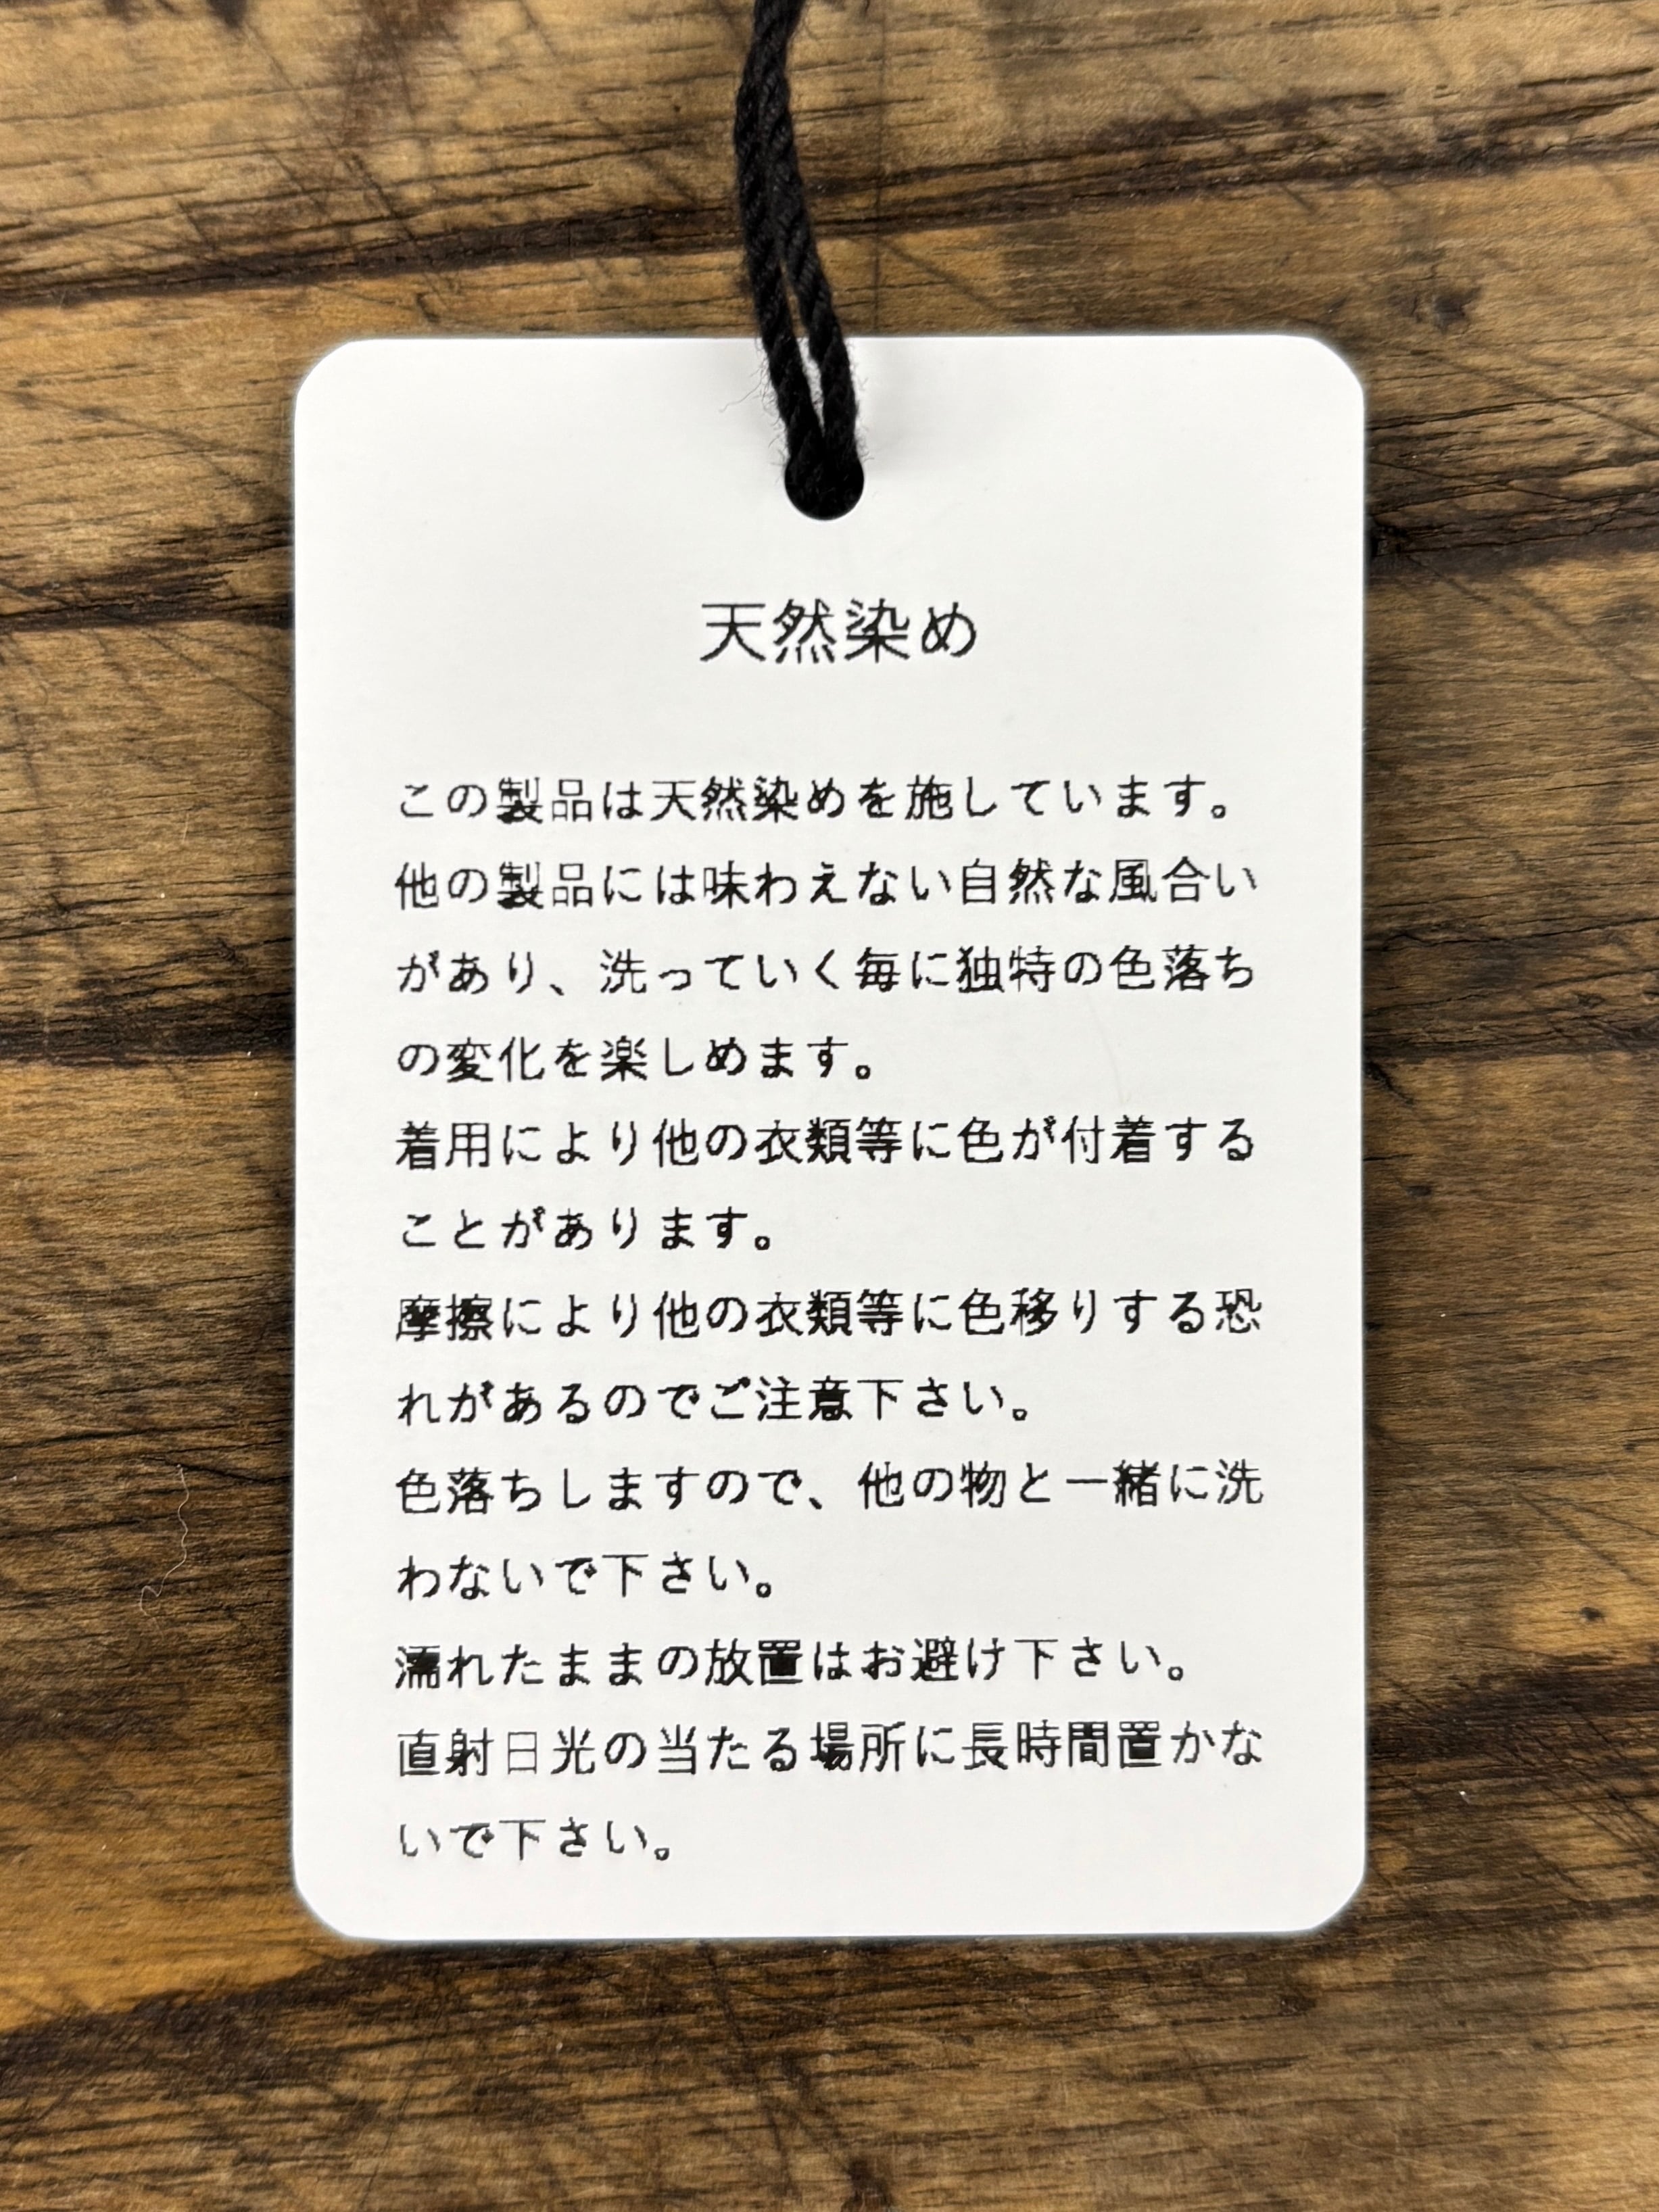 天然染め
この製品は天然染めを施しています。
他の製品には味わえない自然な風合い
があり、洗っていく毎に独特の色落ち
の変化を楽しめます。
着用により他の衣類等に色が付着する
ことがあります。
摩擦により他の衣類等に色移りする恐
れがあるのでご注意下さい。
色落ちしますので、他の物と一緒に洗
わないで下さい。
濡れたままの放置はお避け下さい。
直射日光の当たる場所に長時間置かな
いで下さい。